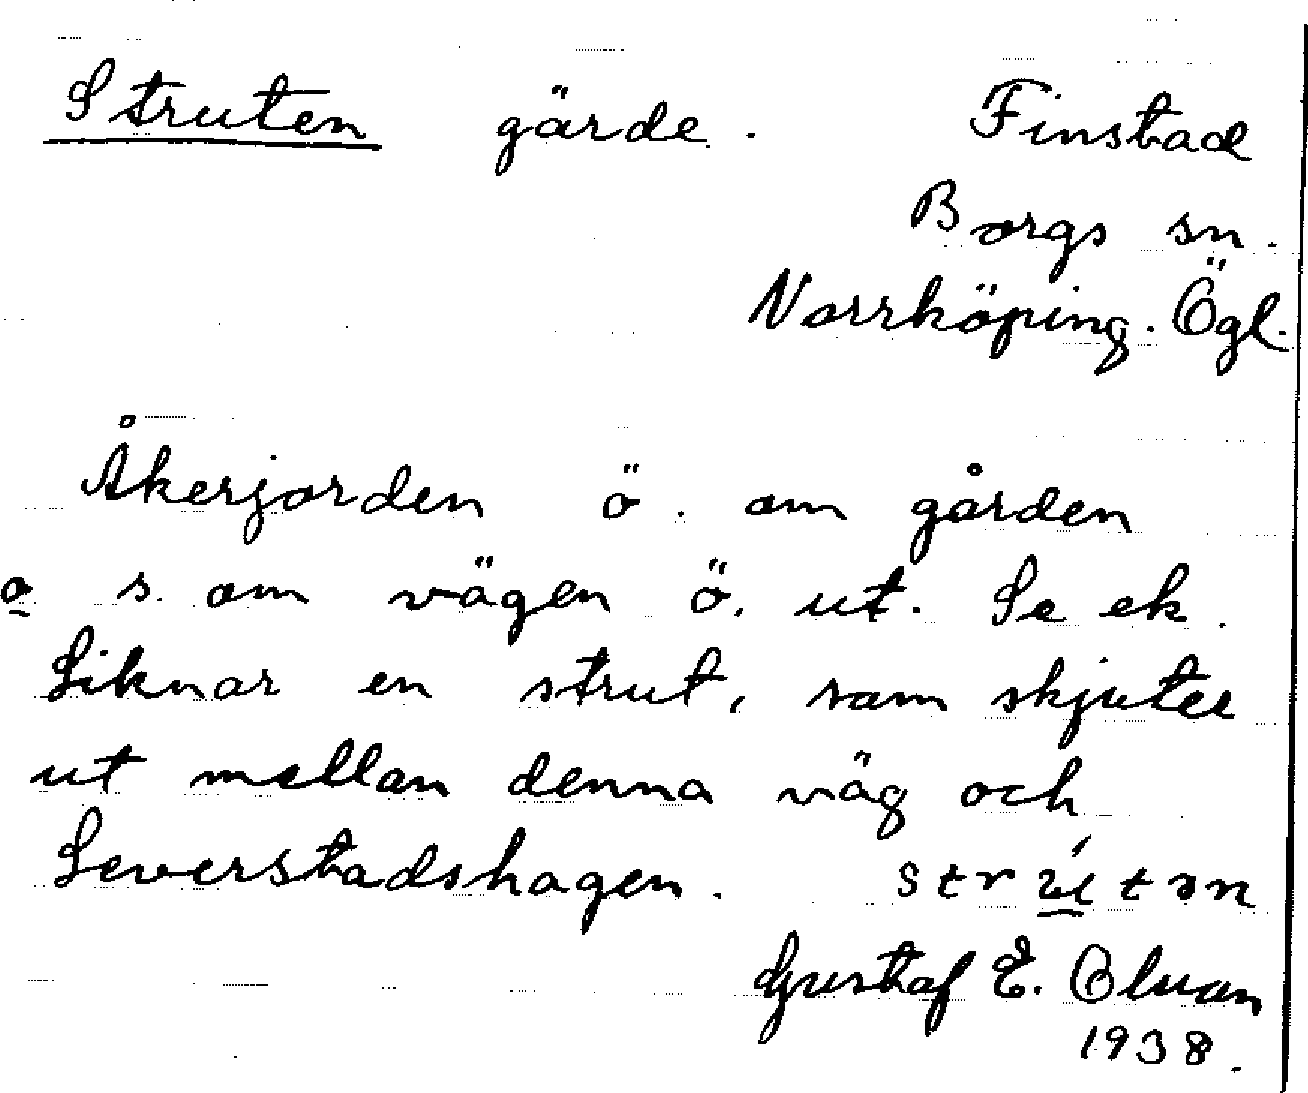 Struten gärde. Finstad
Borgs sn.
Norrköping. Ögl.
Åkerjorden ö. om gården
o s. om vägen ö. ut. Se ek.
Liknar en strut, som skjuter
ut mellan denna väg och
Leverstadshagen. strú̲tən
Gustaf E. Olson
1938.